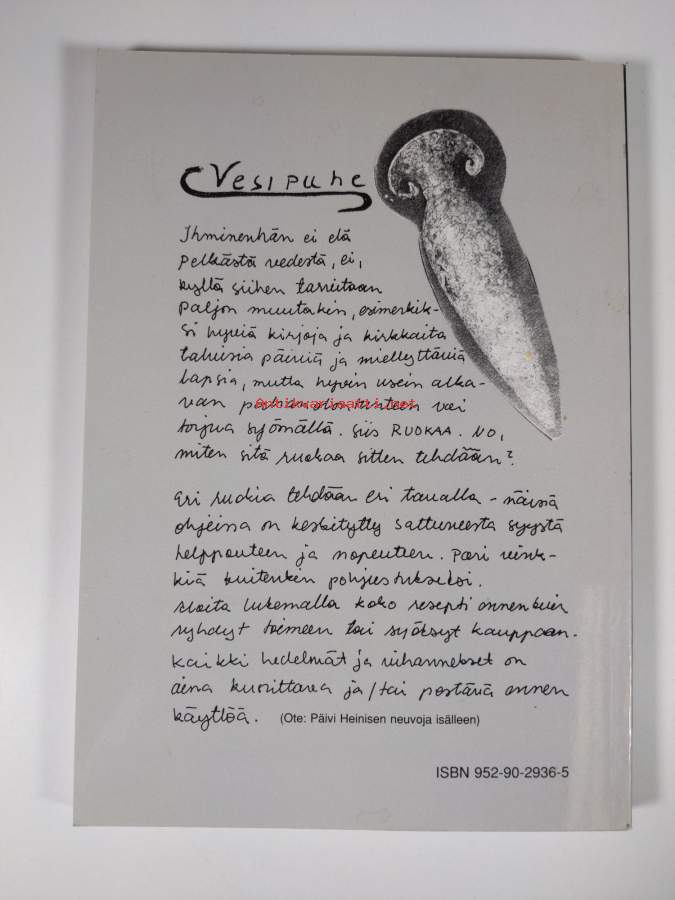 Vesipuhe
Ihminenhän ei elä
pelkästä vedestä, ei,
kyllä siihen tarvitaan
paljon muutakin, esimerkik-
si hyviä kirjoja ja kirkkaita
talvisia päiviä ja miellyttäviä
lapsia, mutta hyvin usein alka-
van pahantuulisuuteen voi
torjua syömällä. Siis RUOKAA. NO,
miten sitä ruokaa sitten tehdään?
Eri ruokia tehdään eri tavalla - näissä
ohjeissa on keskitytty sattuneesta syystä
helppouteen ja nopeuteen. Pari vink-
kiä kuitenkin pohjustukseksi.
Aloita lukemalla koko resepti ennen kuin
ryhdyt toimeen tai syöksyt kauppaan.
Kaikki hedelmät ja vihannekset on
aina kuorittava ja/tai pestävä ennen
käyttöä. (Ote: Päivi Heinisen neuvoja isälleen)
ISBN 952-90-2936-5